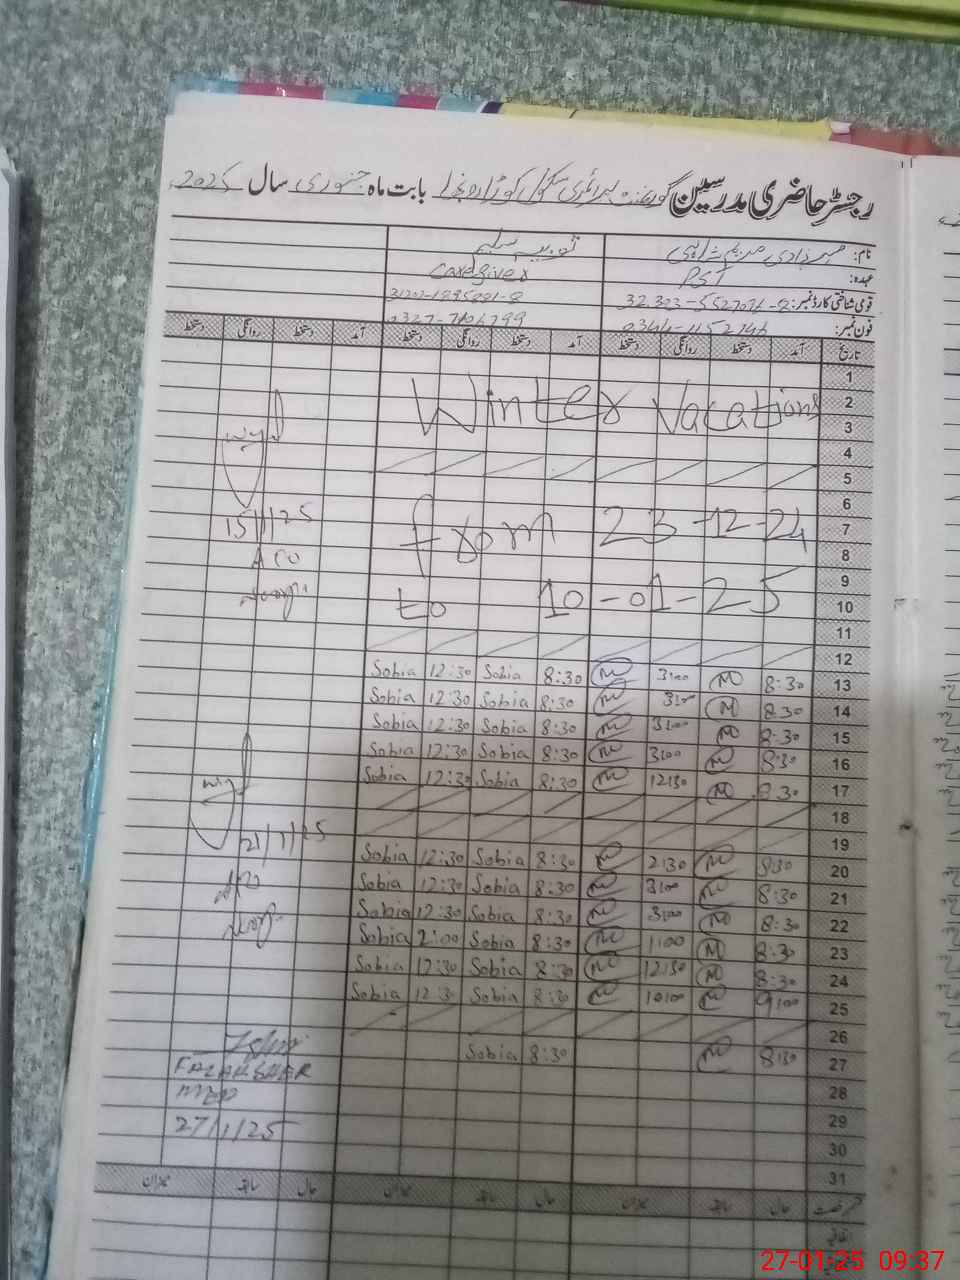 رجسٹر حاضری مدرسین گورنمنٹ پرائمری سکول بابت ماہ جنوری سال 2025
نام:
عہدہ: PST Caregiver
قومی شناختی کارڈ نمبر:
فون نمبر:
تاریخ آمد دستخط روانگی دستخط آمد دستخط روانگی دستخط آمد دستخط روانگی دستخط
1
Winter Vacations 2
3
4
5
6
from 23-12-24 7
8
9
to 10-01-25 10
11
12
Sobia 12:30 Sobia 8:30 M 3:00 M 8:30 13
Sobia 12:30 Sobia 8:30 M 3:00 M 8:30 14
Sobia 12:30 Sobia 8:30 M 3:00 M 8:30 15
Sobia 12:30 Sobia 8:30 M 3:00 M 8:30 16
Sobia 12:30 Sobia 8:30 M 12:30 M 8:30 17
18
19
Sobia 12:30 Sobia 8:30 M 2:30 M 8:30 20
Sobia 12:30 Sobia 8:30 M 3:00 M 8:30 21
Sobia 12:30 Sobia 8:30 M 3:00 M 8:30 22
Sobia 2:00 Sobia 8:30 M 1:00 M 8:30 23
Sobia 12:30 Sobia 8:30 M 12:30 M 8:30 24
Sobia 12:30 Sobia 8:30 M 10:00 M 9:00 25
26
Sobia 8:30 M 8:30 27
28
29
30
31
15/1/25
AEO
21/1/25
AEO
27/1/25
میزان سابقہ حال میزان سابقہ حال میزان سابقہ حال
27-01-25 09:37